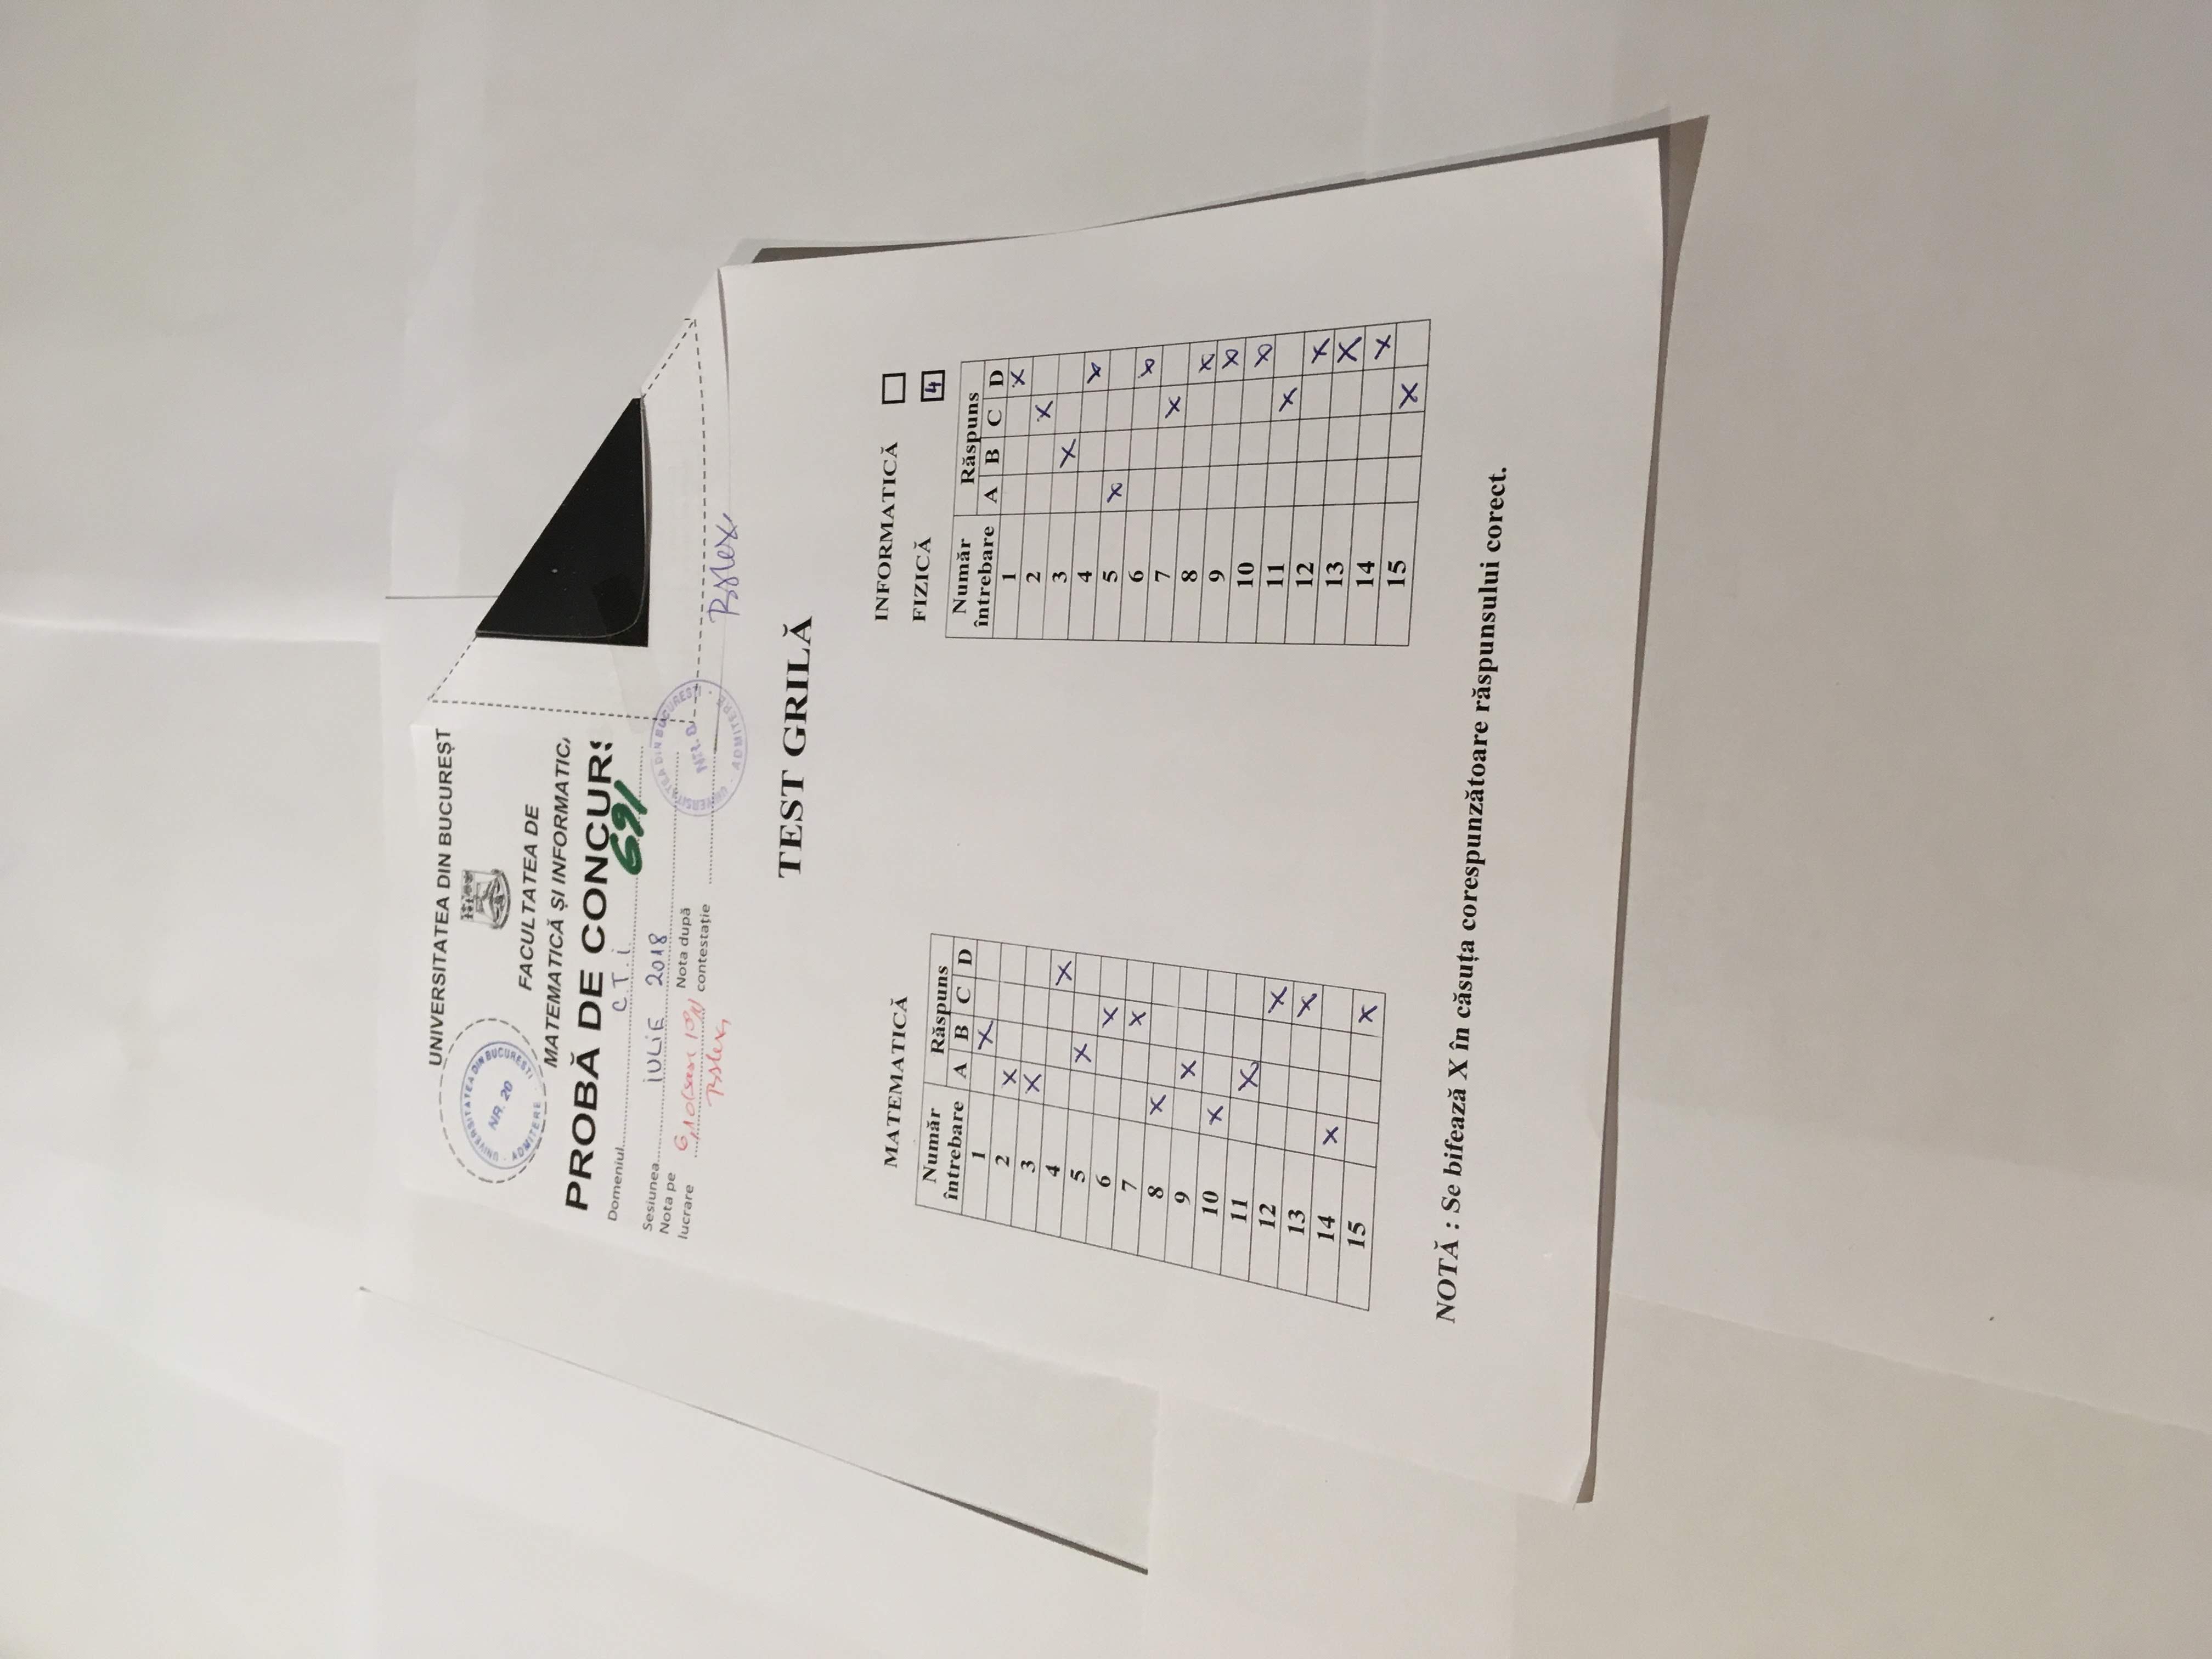 UNIVERSITATEA DIN BUCUREȘT
UNIVERSITATEA DIN BUCUREȘTI
NR. 20
ADMITERE
FACULTATEA DE
MATEMATICĂ ȘI INFORMATIC
PROBĂ DE CONCURS
Domeniul C.T.i. 691
Sesiunea iULiE 2018
Nota pe lucrare 6,10
Nota după contestație
UNIVERSITATEA DIN BUCUREȘTI
ADMITERE
TEST GRILĂ
MATEMATICĂ
Număr întrebare Răspuns
A B C D
1 X
2 X
3 X
4 X
5 X
6 X
7 X
8 X
9 X
10 X
11 X
12 X
13 X
14 X
15 X
INFORMATICĂ
FIZICĂ 4
Număr întrebare Răspuns
A B C D
1 X
2 X
3 X
4 X
5 X
6 X
7 X
8 X
9 X
10 X
11 X
12 X
13 X
14 X
15 X
NOTĂ : Se bifează X în căsuța corespunzătoare răspunsului corect.